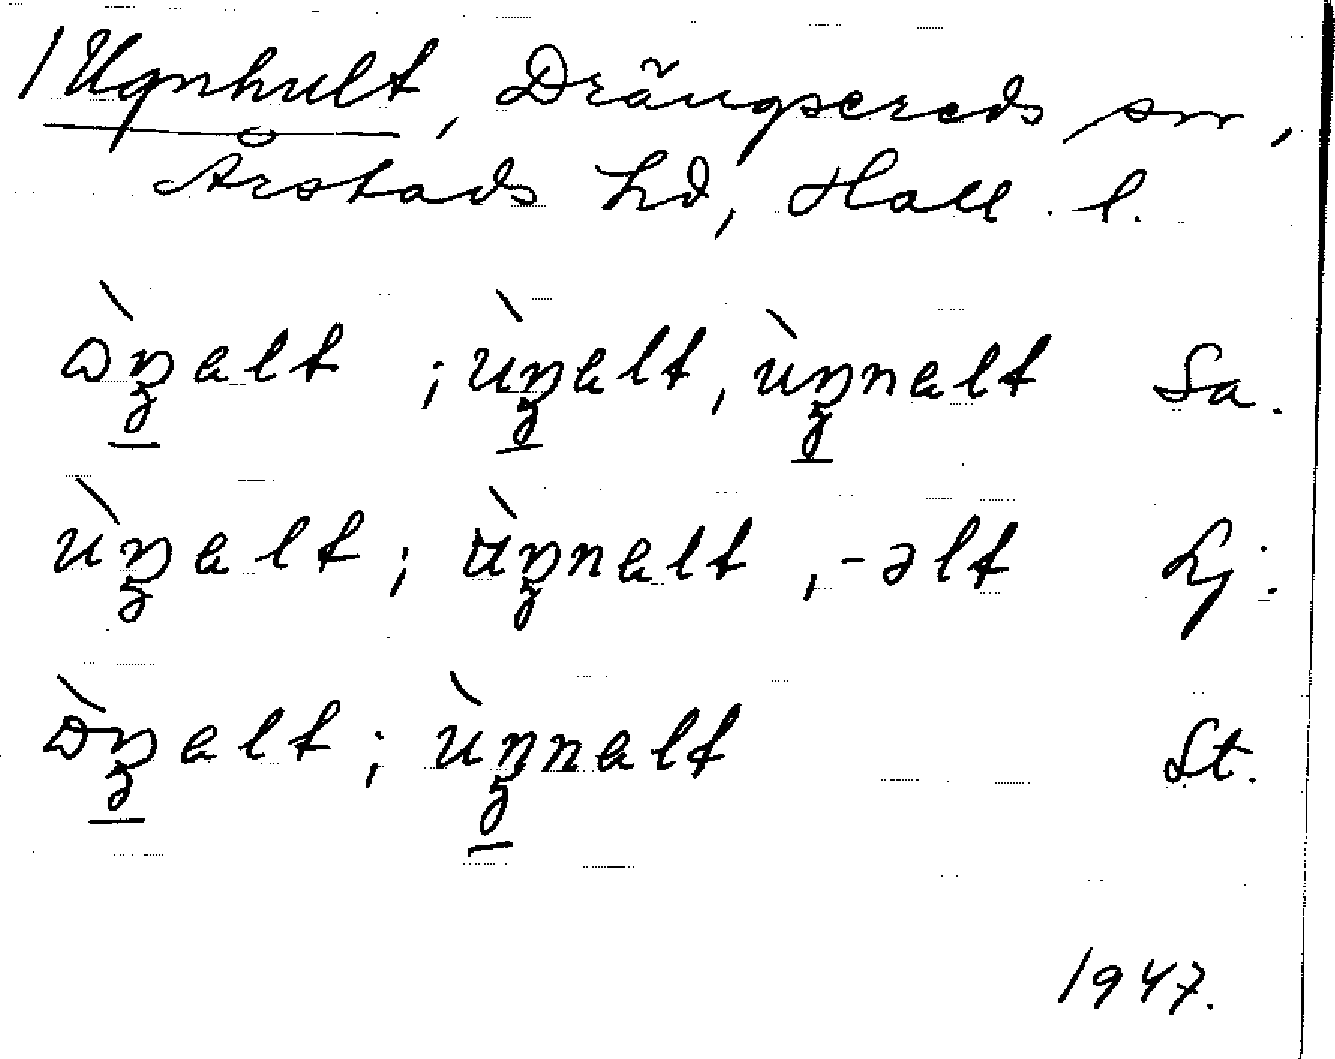 /Ugnhult, Drängsereds sn,
Årstads hd, Hall. l.
ɷ̀ŋalt ; ùŋalt, ùŋnalt Sa.
ùŋalt ; ùŋnalt, -əlt Lj.
ɷ̀ŋalt ; ùŋnalt St.
1947.